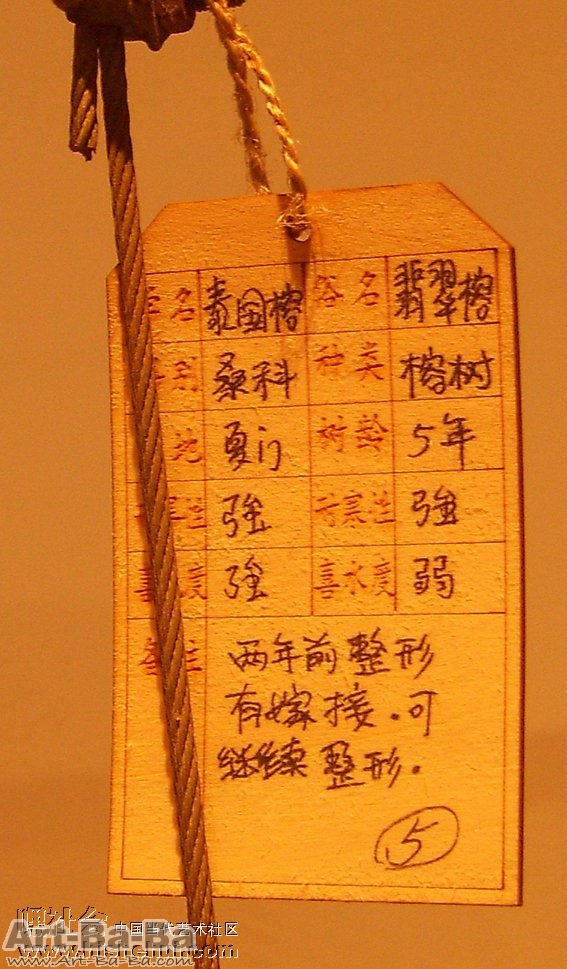 名 泰国榕 俗名 翡翠榕
科别 桑科 种类 榕树
地 夏门 树龄 5年
性 強 耐寒性 強
喜 度 強 喜水度 弱
备注 两年前整形
有嫁接.可
继续整形.
5
中国当代艺术社区
Art-Ba-Ba
www.Art-Ba-Ba.com